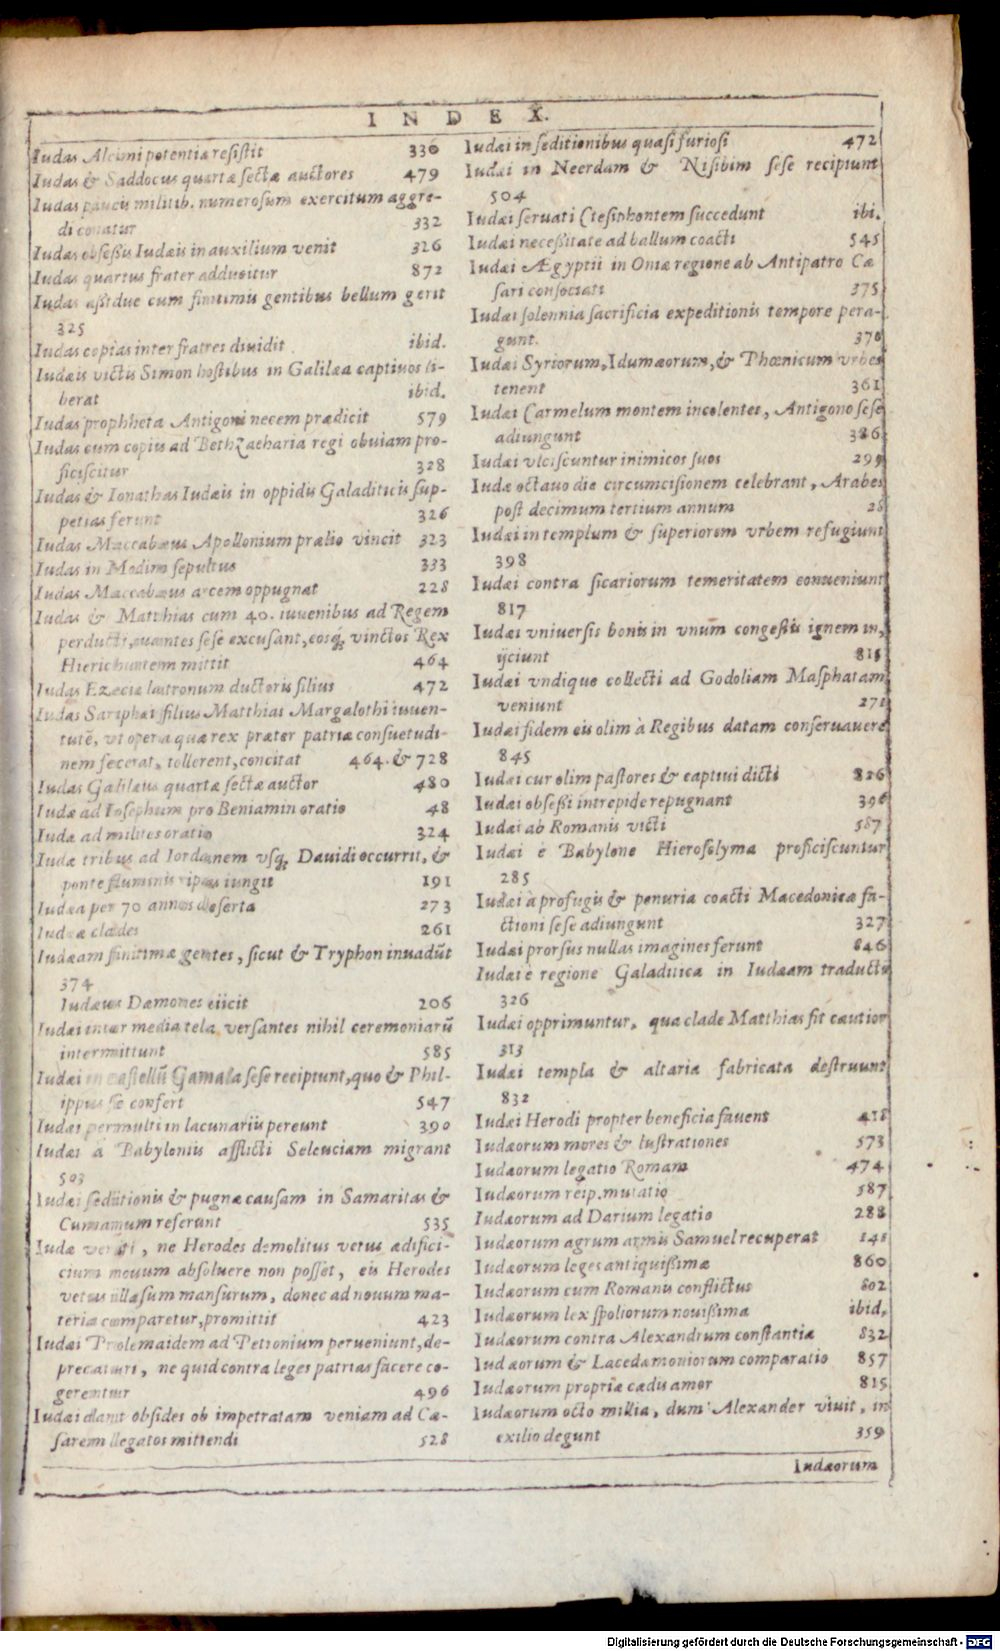 INDEX.
Iudas Alcimi potentiæ resistit 336
Iudas & Saddocus quartæ sectæ auctores 479
Iudas paucis militib. numerosum exercitum aggre-
di conatur 332
Iudas obseßis Iudæis in auxilium venit 326
Iudas quartus frater adducitur 872
Iudas aßidue cum finitimis gentibus bellum gerit
325
Iudas copias inter fratres diuidit ibid.
Iudæis victis Simon hostibus in Galilæa captiuos li-
berat ibid.
Iudas prophheta Antigoni necem prædicit 579
Iudas cum copiis ad BethZacharia regi obuiam pro-
ficiscitur 328
Iudas & Ionathas Iudæis in oppidis Galaditicis sup-
petias ferunt 326
Iudas Maccabæus Apollonium prælio vincit 323
Iudas in Modim sepultus 333
Iudas Maccabæus arcem oppugnat 228
Iudas & Matthias cum 40. iuuenibus ad Regem
perducti, sese excusant, eosq; vinctos Rex
Hierichuntem mittit 464
Iudas Ezeciæ latronum ductoris filius 472
Iudas Sariphæi filius Matthias Margalothi iuuen-
tutē, vt opera quæ rex præter patriæ consuetudi-
nem fecerat, tollerent, concitat 464. & 728
Iudas Galilæus quartæ sectæ auctor 480
Iudæ ad Iosephum pro Beniamin oratio 48
Iudæ ad milites oratio 324
Iudæ tribus ad Iordanem vsq; Dauidi occurrit, &
ponte fluminis ripas iungit 191
Iudæa per 70 annos deserta 273
Iudææ clades 261
Iudæam finitimæ gentes, sicut & Tryphon inuadūt
374
Iudæus Dæmones eiicit 206
Iudæi inter media tela versantes nihil ceremoniarū
intermittunt 585
Iudæi in castellū Gamala sese recipiunt, quo & Phil-
ippus se confert 547
Iudæi permulti in lacunariis pereunt 390
Iudæi à Babyloniis afflicti Seleuciam migrant
503
Iudæi seditionis & pugnæ causam in Samaritas &
Cumanum referunt 535
Iudæ veriti, ne Herodes demolitus vetus ædifici-
cium nouum absoluere non posset, eis Herodes
vetus illæsum mansurum, donec ad nouum ma-
teria comparetur, promittit 423
Iudæi Ptolemaidem ad Petronium perueniunt, de-
precaturi, ne quid contra leges patrias facere co-
gerentur 496
Iudæi dant obsides ob impetratam veniam ad Cæ-
sarem legatos mittendi 528
Iudæi in seditionibus quasi furiosi 472
Iudæi in Neerdam & Nisibim sese recipiunt
504
Iudæi seruati Ctesiphontem succedunt ibi.
Iudæi neceßitate ad ballum coacti 545
Iudæi Ægyptii in Oniæ regione ab Antipatro Cæ
sari consociati 375
Iudæi solennia sacrificia expeditionis tempore pera-
gunt. 370
Iudæi Syriorum, Idumæorum, & Phœnicum vrbes
tenent 361
Iudæi Carmelum montem incolentes, Antigono sese
adiungunt 386
Iudæi vlciscuntur inimicos suos 299
Iudæ octauo die circumcisionem celebrant, Arabes
post decimum tertium annum 28
Iudæi in templum & superiorem vrbem refugiunt
398
Iudæi contra sicariorum temeritatem conueniunt
817
Iudæi vniuersis bonis in vnum congestis ignem in-
ijciunt 815
Iudæi vndique collecti ad Godoliam Masphatam
veniunt 271
Iudæi fidem eis olim à Regibus datam conseruauere
845
Iudæi cur olim pastores & captiui dicti 826
Iudæi obseßi intrepide repugnant 396
Iudæi ab Romanis victi 587
Iudæi è Babylone Hierosolyma proficiscuntur
285
Iudæi à profugis & penuria coacti Macedonicæ fa-
ctioni sese adiungunt 327
Iudæi prorsus nullas imagines ferunt 846
Iudæi è regione Galaditica in Iudæam traducti
326
Iudæi opprimuntur, qua clade Matthias fit cautior
313
Iudæi templa & altaria fabricata destruunt
832
Iudæi Herodi propter beneficia fauent 418
Iudæorum mores & lustrationes 573
Iudæorum legatio Romam 474
Iudæorum reip. mutatio 587
Iudæorum ad Darium legatio 288
Iudæorum agrum armis Samuel recuperat 141
Iudæorum leges antiquißimæ 860
Iudæorum cum Romanis conflictus 802
Iudæorum lex spoliorum nouißima ibid.
Iudæorum contra Alexandrum constantia 832
Iudæorum & Lacedæmoniorum comparatio 857
Iudæorum propriæ cædis amor 815
Iudæorum octo millia, dum Alexander viuit, in
exilio degunt 359
Iudæorum
Digitalisierung gefördert durch die Deutsche Forschungsgemeinschaft - DFG